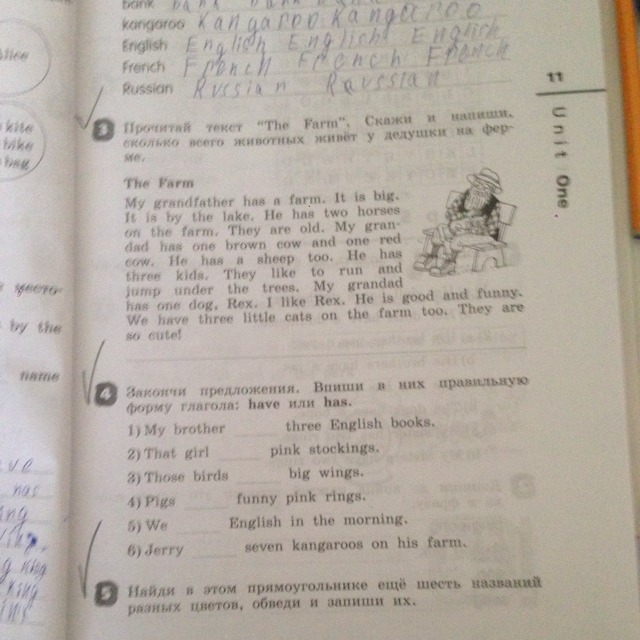 bank bank bank bank
kangaroo Kangaroo Kangaroo
English English English English
French French French French
Russian Russian Raussian
11
Unit One
Alice
kite
bike
bag
by the
name
3 Прочитай текст "The Farm". Скажи и напиши,
сколько всего животных живёт у дедушки на фер-
ме.
The Farm
My grandfather has a farm. It is big.
It is by the lake. He has two horses
on the farm. They are old. My gran-
dad has one brown cow and one red
cow. He has a sheep too. He has
three kids. They like to run and
jump under the trees. My grandad
has one dog, Rex. I like Rex. He is good and funny.
We have three little cats on the farm too. They are
so cute!
4 Закончи предложения. Впиши в них правильную
форму глагола: have или has.
1) My brother ______ three English books.
2) That girl ______ pink stockings.
3) Those birds ______ big wings.
4) Pigs ______ funny pink rings.
5) We ______ English in the morning.
6) Jerry ______ seven kangaroos on his farm.
5 Найди в этом прямоугольнике ещё шесть названий
разных цветов, обведи и запиши их.